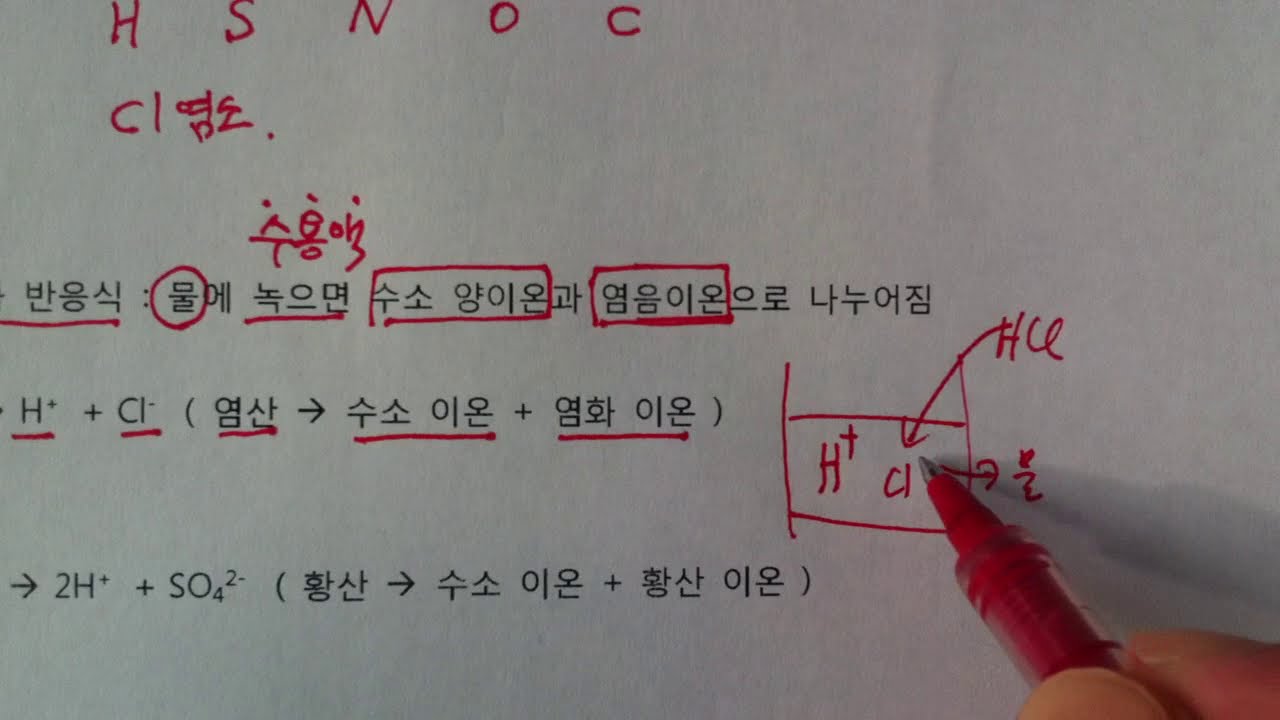 H S N O C
Cl 염소.
수용액
반응식 : 물에 녹으면 수소 양이온과 염음이온으로 나누어짐
HCl
→ H⁺ + Cl⁻ ( 염산 → 수소 이온 + 염화 이온 )
H⁺ Cl → 물
→ 2H⁺ + SO₄²⁻ ( 황산 → 수소 이온 + 황산 이온 )